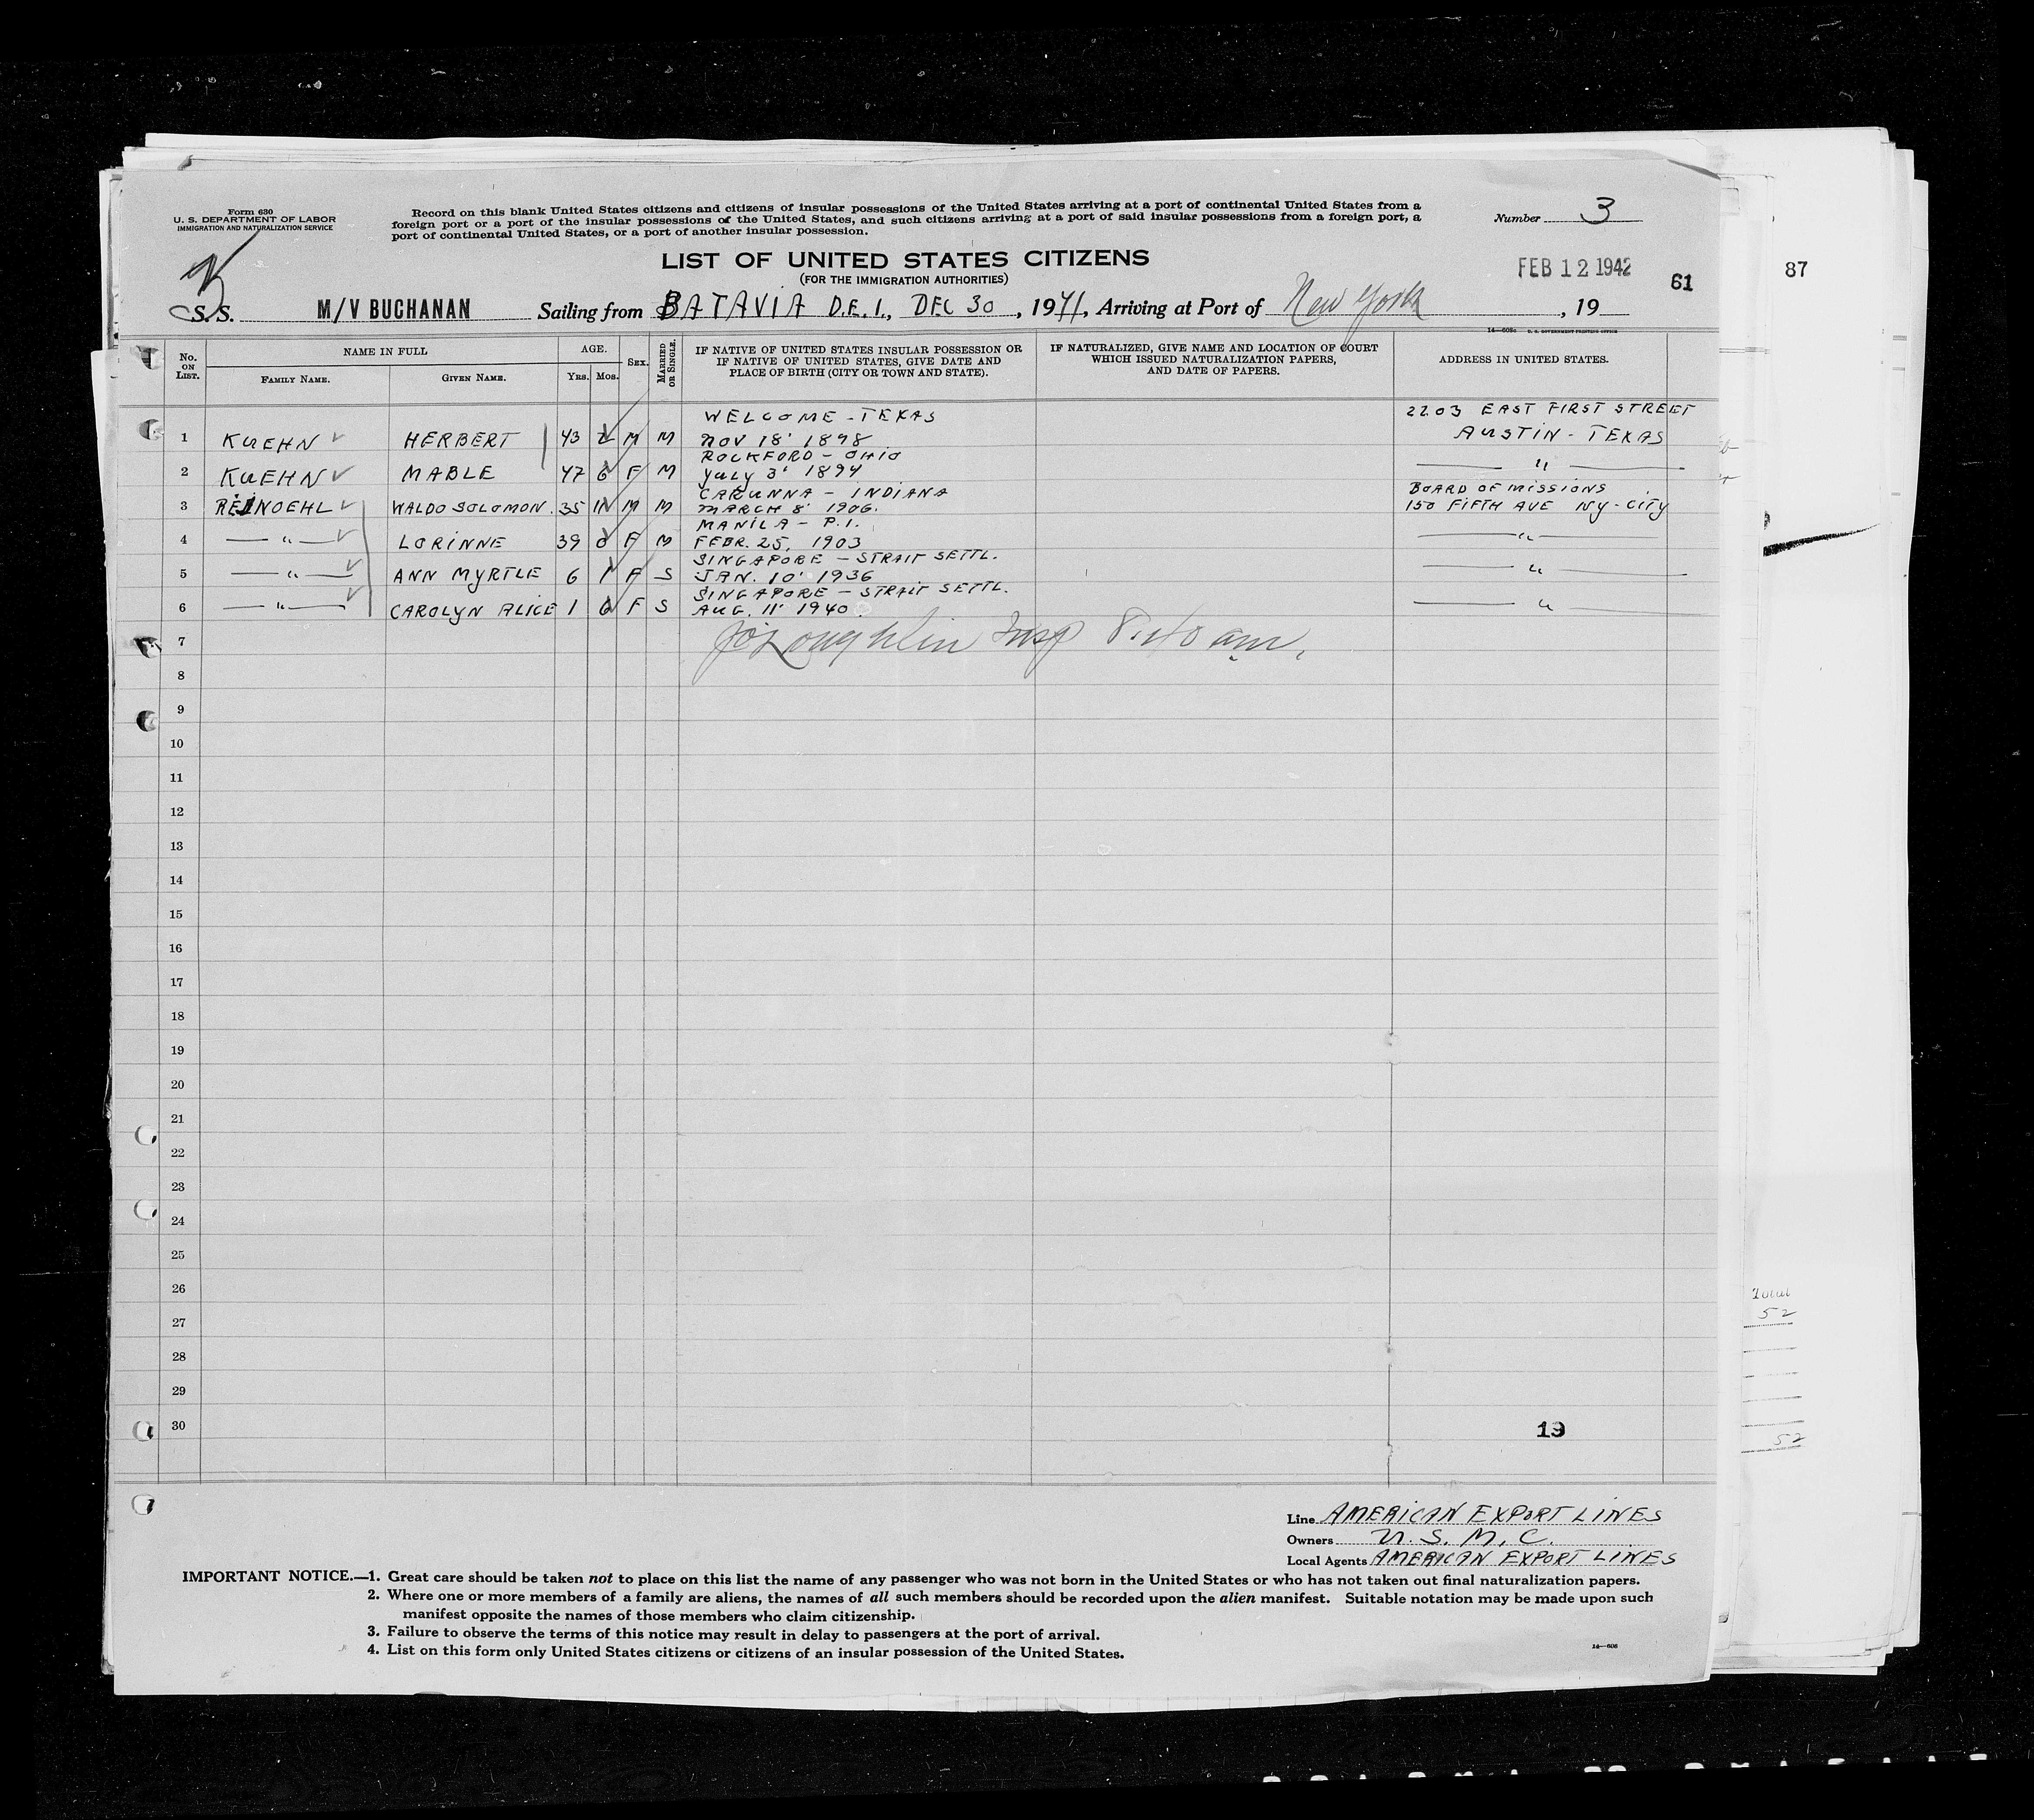 Form 630
U. S. DEPARTMENT OF LABOR
IMMIGRATION AND NATURALIZATION SERVICE
Record on this blank United States citizens and citizens of insular possessions of the United States arriving at a port of continental United States from a
foreign port or a port of the insular possessions of the United States, and such citizens arriving at a port of said insular possessions from a foreign port, a
port of continental United States, or a port of another insular possession.
Number 3
LIST OF UNITED STATES CITIZENS
(FOR THE IMMIGRATION AUTHORITIES)
FEB 12 1942
61
87
S. S. M/V BUCHANAN Sailing from BATAVIA D.E.I., DEC 30, 1941, Arriving at Port of New York, 19
14—606c U. S. GOVERNMENT PRINTING OFFICE
No. ON LIST.
NAME IN FULL
FAMILY NAME. GIVEN NAME.
AGE.
YRS. MOS.
SEX.
MARRIED OR SINGLE.
IF NATIVE OF UNITED STATES INSULAR POSSESSION OR
IF NATIVE OF UNITED STATES, GIVE DATE AND
PLACE OF BIRTH (CITY OR TOWN AND STATE).
IF NATURALIZED, GIVE NAME AND LOCATION OF COURT
WHICH ISSUED NATURALIZATION PAPERS,
AND DATE OF PAPERS.
ADDRESS IN UNITED STATES.
WELCOME - TEXAS 2203 EAST FIRST STREET
1 KUEHN HERBERT 43 2 M M NOV 18' 1898 AUSTIN - TEXAS
ROCKFORD - OHIO
2 KUEHN MABLE 47 6 F M July 3' 1894 — " —
CARUNNA - INDIANA BOARD OF MISSIONS
3 REINOEHL WALDO SOLOMON. 35 11 M M MARCH 8' 1906. 150 FIFTH AVE NY-CITY
MANILA - P.I.
4 — " — LORINNE 39 0 F M FEBR. 25, 1903 — " —
SINGAPORE - STRAIT SETTL.
5 — " — ANN MYRTLE 6 1 F S JAN. 10' 1936 — " —
SINGAPORE - STRAIT SETTL.
6 — " — CAROLYN ALICE 1 6 F S AUG. 11' 1940 — " —
7 JO'Loughlin Insp 8:40 am.
8
9
10
11
12
13
14
15
16
17
18
19
20
21
22
23
24
25
26
27
28
29
30
19
Total
52
52
Line AMERICAN EXPORT LINES
Owners U. S. M. C.
Local Agents AMERICAN EXPORT LINES
IMPORTANT NOTICE.—1. Great care should be taken not to place on this list the name of any passenger who was not born in the United States or who has not taken out final naturalization papers.
2. Where one or more members of a family are aliens, the names of all such members should be recorded upon the alien manifest. Suitable notation may be made upon such
manifest opposite the names of those members who claim citizenship.
3. Failure to observe the terms of this notice may result in delay to passengers at the port of arrival.
4. List on this form only United States citizens or citizens of an insular possession of the United States.
14—606